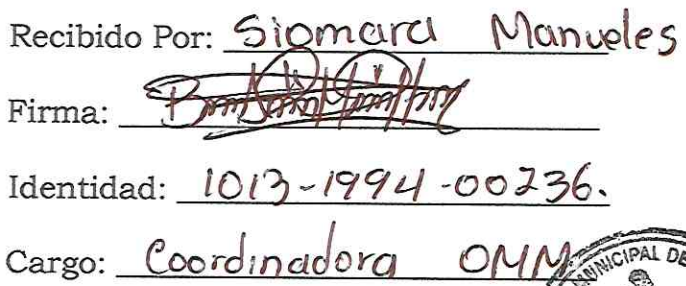 Recibido Por: Siomara Manueles
Firma:
Identidad: 1013-1994-00236.
Cargo: Coordinadora OMM
MUNICIPAL DE